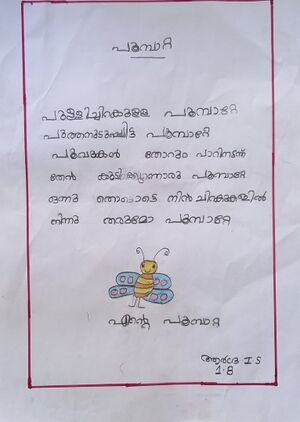 പൂമ്പാറ്റ
പുള്ളിച്ചിറകുള്ള പൂമ്പാറ്റേ
പുത്തനുടുപ്പിട്ട പൂമ്പാറ്റേ
പൂവുകൾ തോറും പാറിനടന്ന്
തേൻ കുടിക്കുന്നൊരു പൂമ്പാറ്റേ
ഒന്നു തൊടാട്ടെ നിൻ ചിറകുകളിൽ
നിന്നു തരുമോ പൂമ്പാറ്റേ
എന്റെ പൂമ്പാറ്റ
I.S
1.B